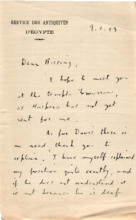 SERVICE DES ANTIQUITÉS
D'ÉGYPTE
Dear Bissing,
I hope to meet you
at the temple tomorrow,
as Maspero has not yet
sent for me.
As for Davis there is
no need, thank you to
explain. I have myself explained
my position quite exactly, and
if he does not understand it
is not because he is deaf.